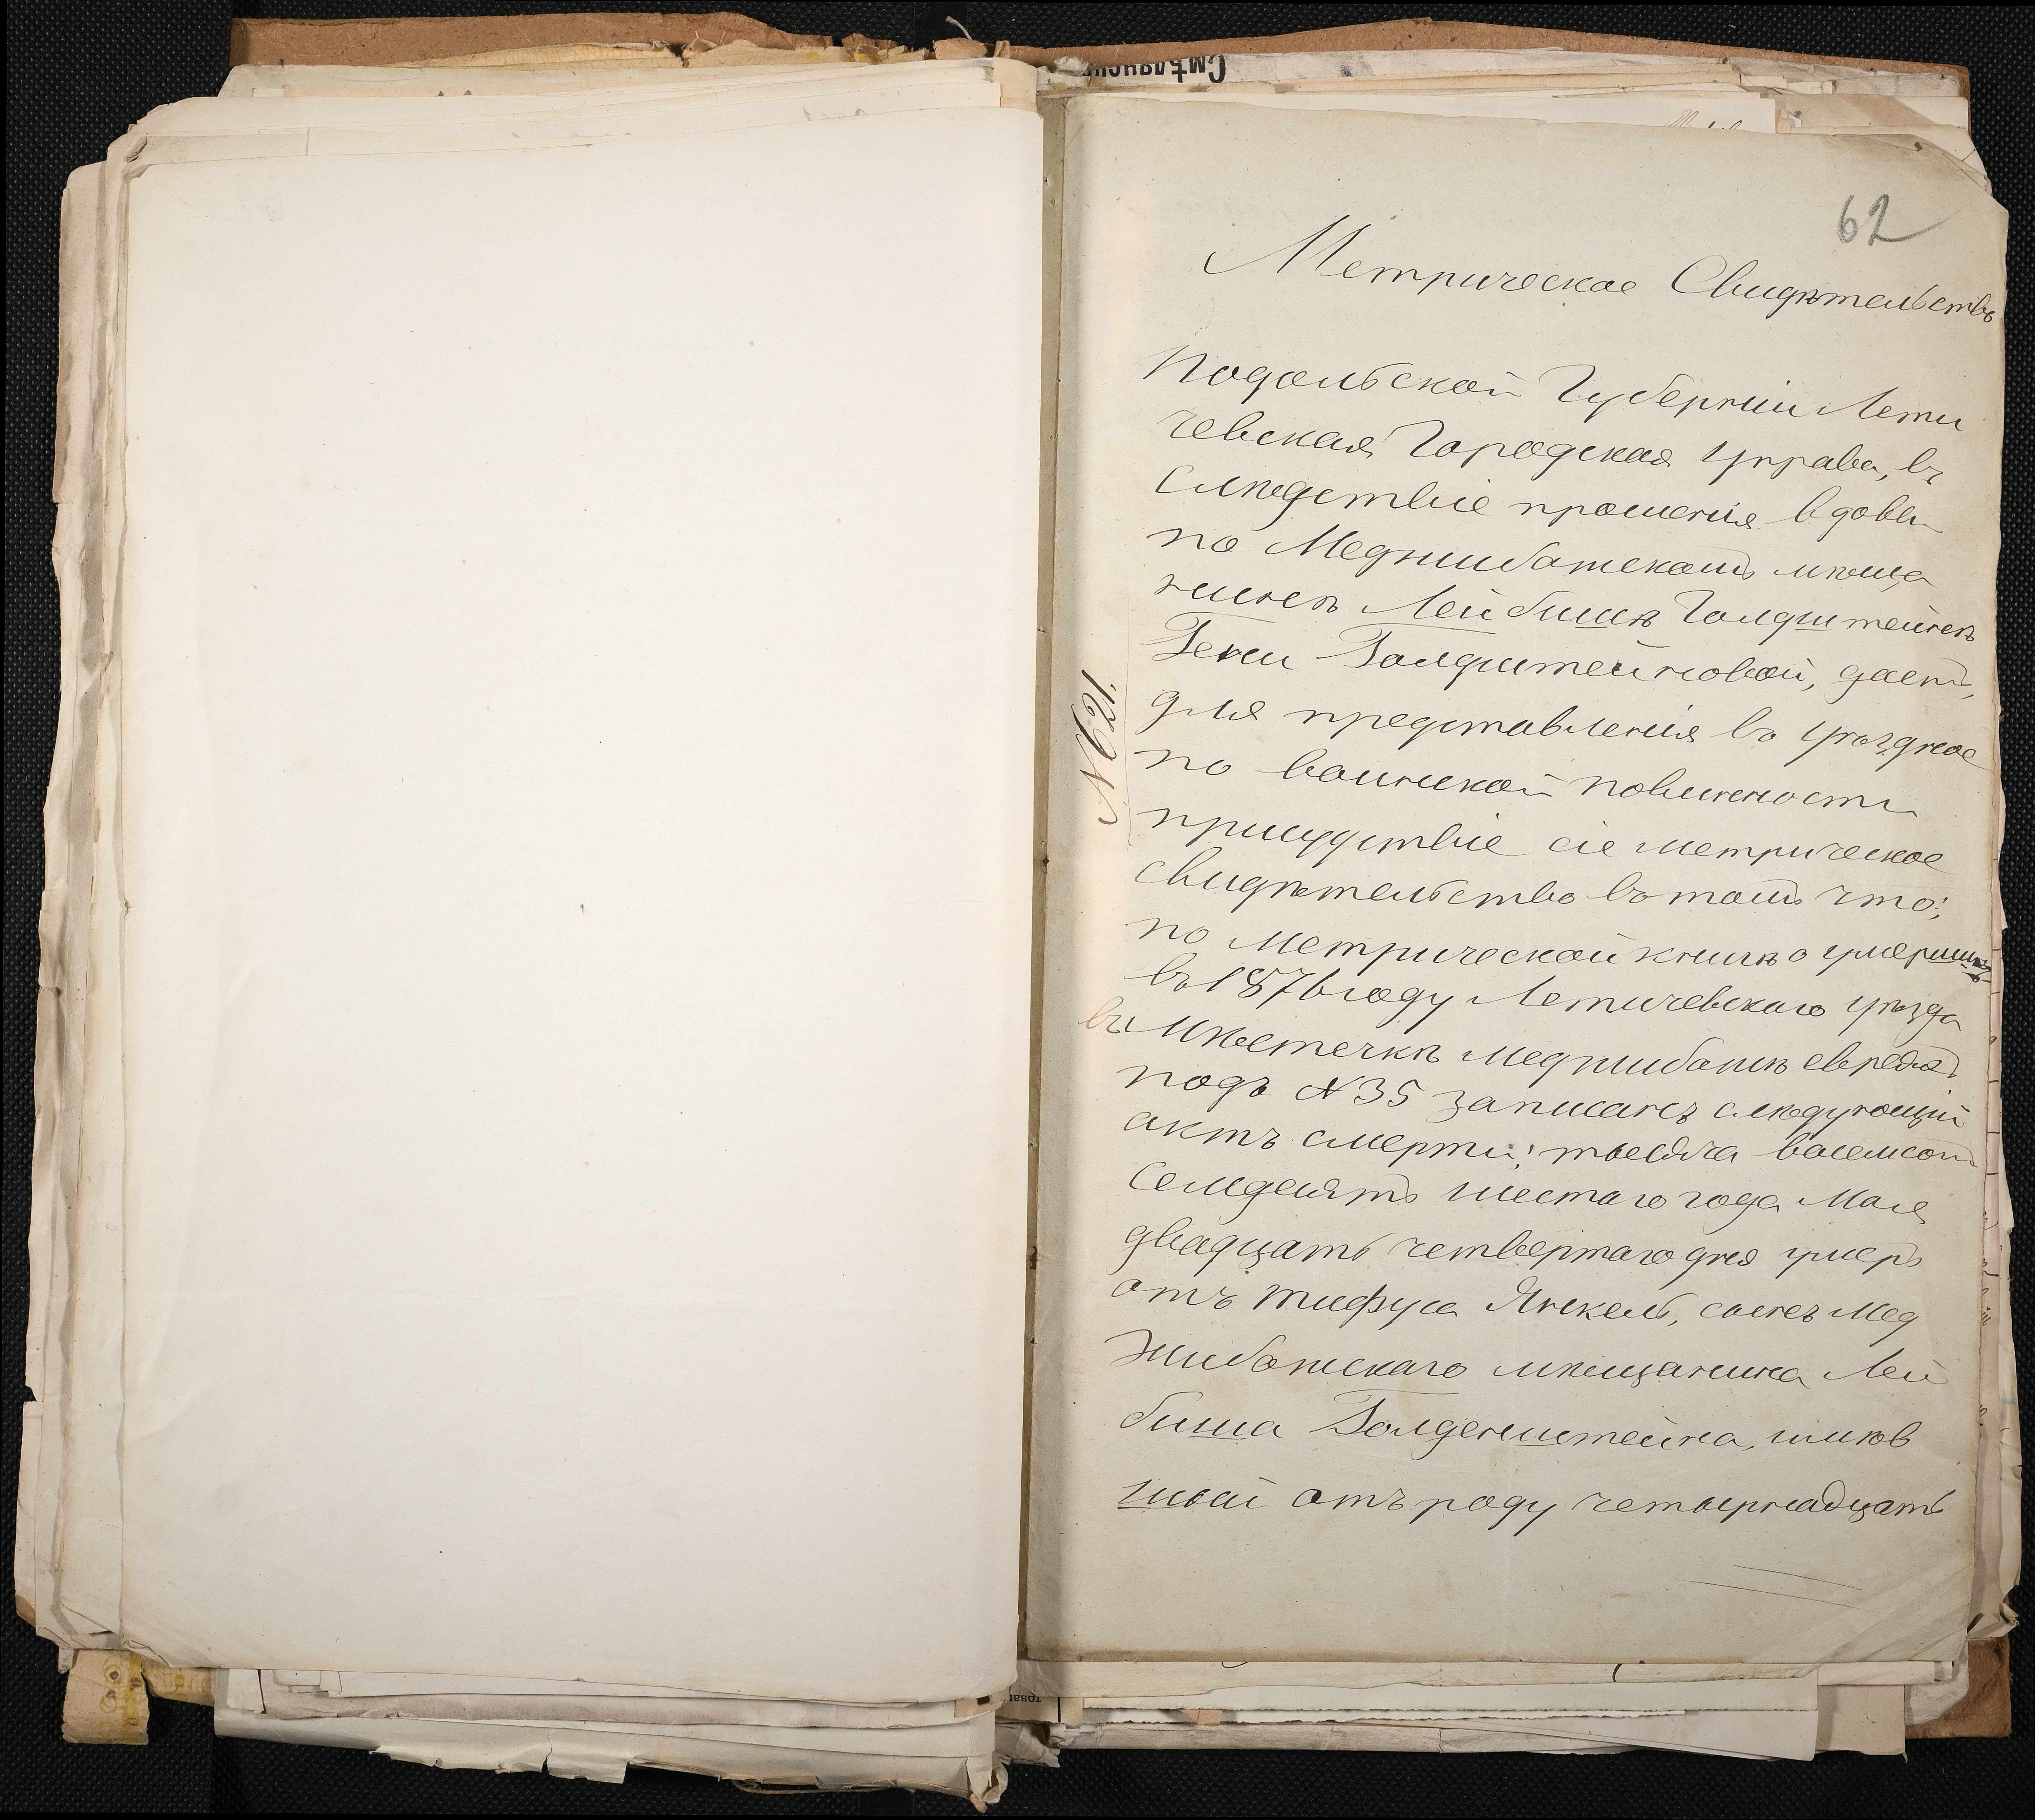 Смѣлянск
62
Метрическое Свидѣтельство
Подольской Губерніи Лети
чевская Городская Управа, въ
слѣдствіе прошенія вдовы
по Меджибожскомъ мѣща
нинѣ Лейбишѣ Голдштейнѣ
Гени Голдштейновой, даетъ,
для представленія въ уѣздное
по воинской повинности
присудствіе сіе метрическое
свидѣтельство въ томъ что;
по метрической книгѣ о умершихъ
въ 1876 году Летичевскаго уѣзда
въ мѣстечкѣ Меджибожѣ евреевъ
подъ №35 записанъ слѣдующій
актъ смерти; тысяча восемсотъ
семдесятъ шестаго года Мая
двадцать четвертаго дня умеръ
отъ тифуса Янкель, сынъ Мед
жибожскаго мѣщанина Лей
биша Голденштейна, имѣв
шый отъ роду четырнадцать
№621.